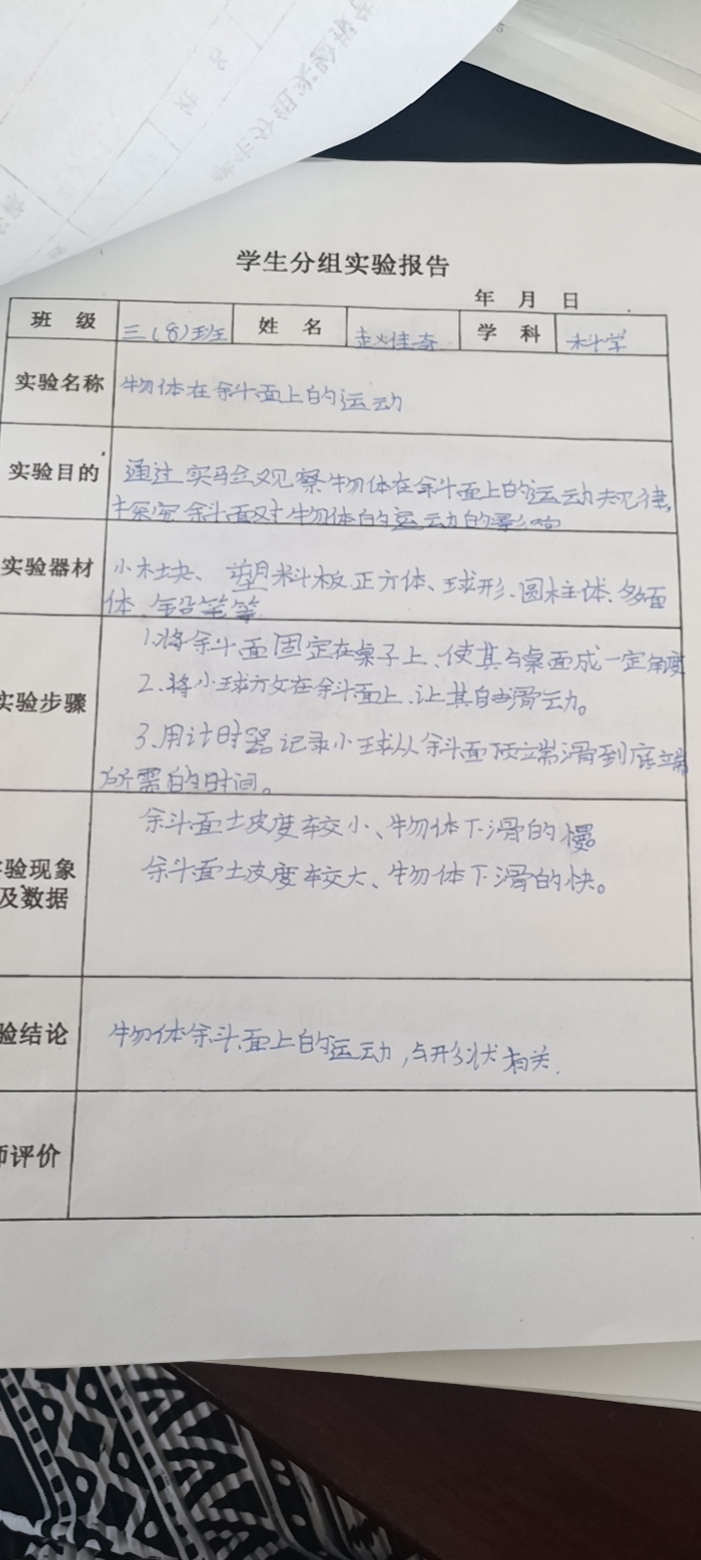 学生分组实验报告
年 月 日
班 级 三(8)班 姓 名 赵佳奇 学 科 科学
实验名称 物体在斜面上的运动
实验目的 通过实验观察物体在斜面上的运动规律,
探究斜面对物体的运动的影响
实验器材 小木块、塑料板.正方体、球形、圆柱体、多面
体 铅笔等
实验步骤 1.将斜面固定在桌子上、使其与桌面成一定角度
2.将小球放在斜面上、让其自由滑动。
3.用计时器记录小球从斜面顶端滑到底端
所需的时间。
验现象
及数据
斜面坡度较小、物体下滑的慢
斜面坡度较大、物体下滑的快。
验结论 物体斜面上的运动,与形状有关.
师评价